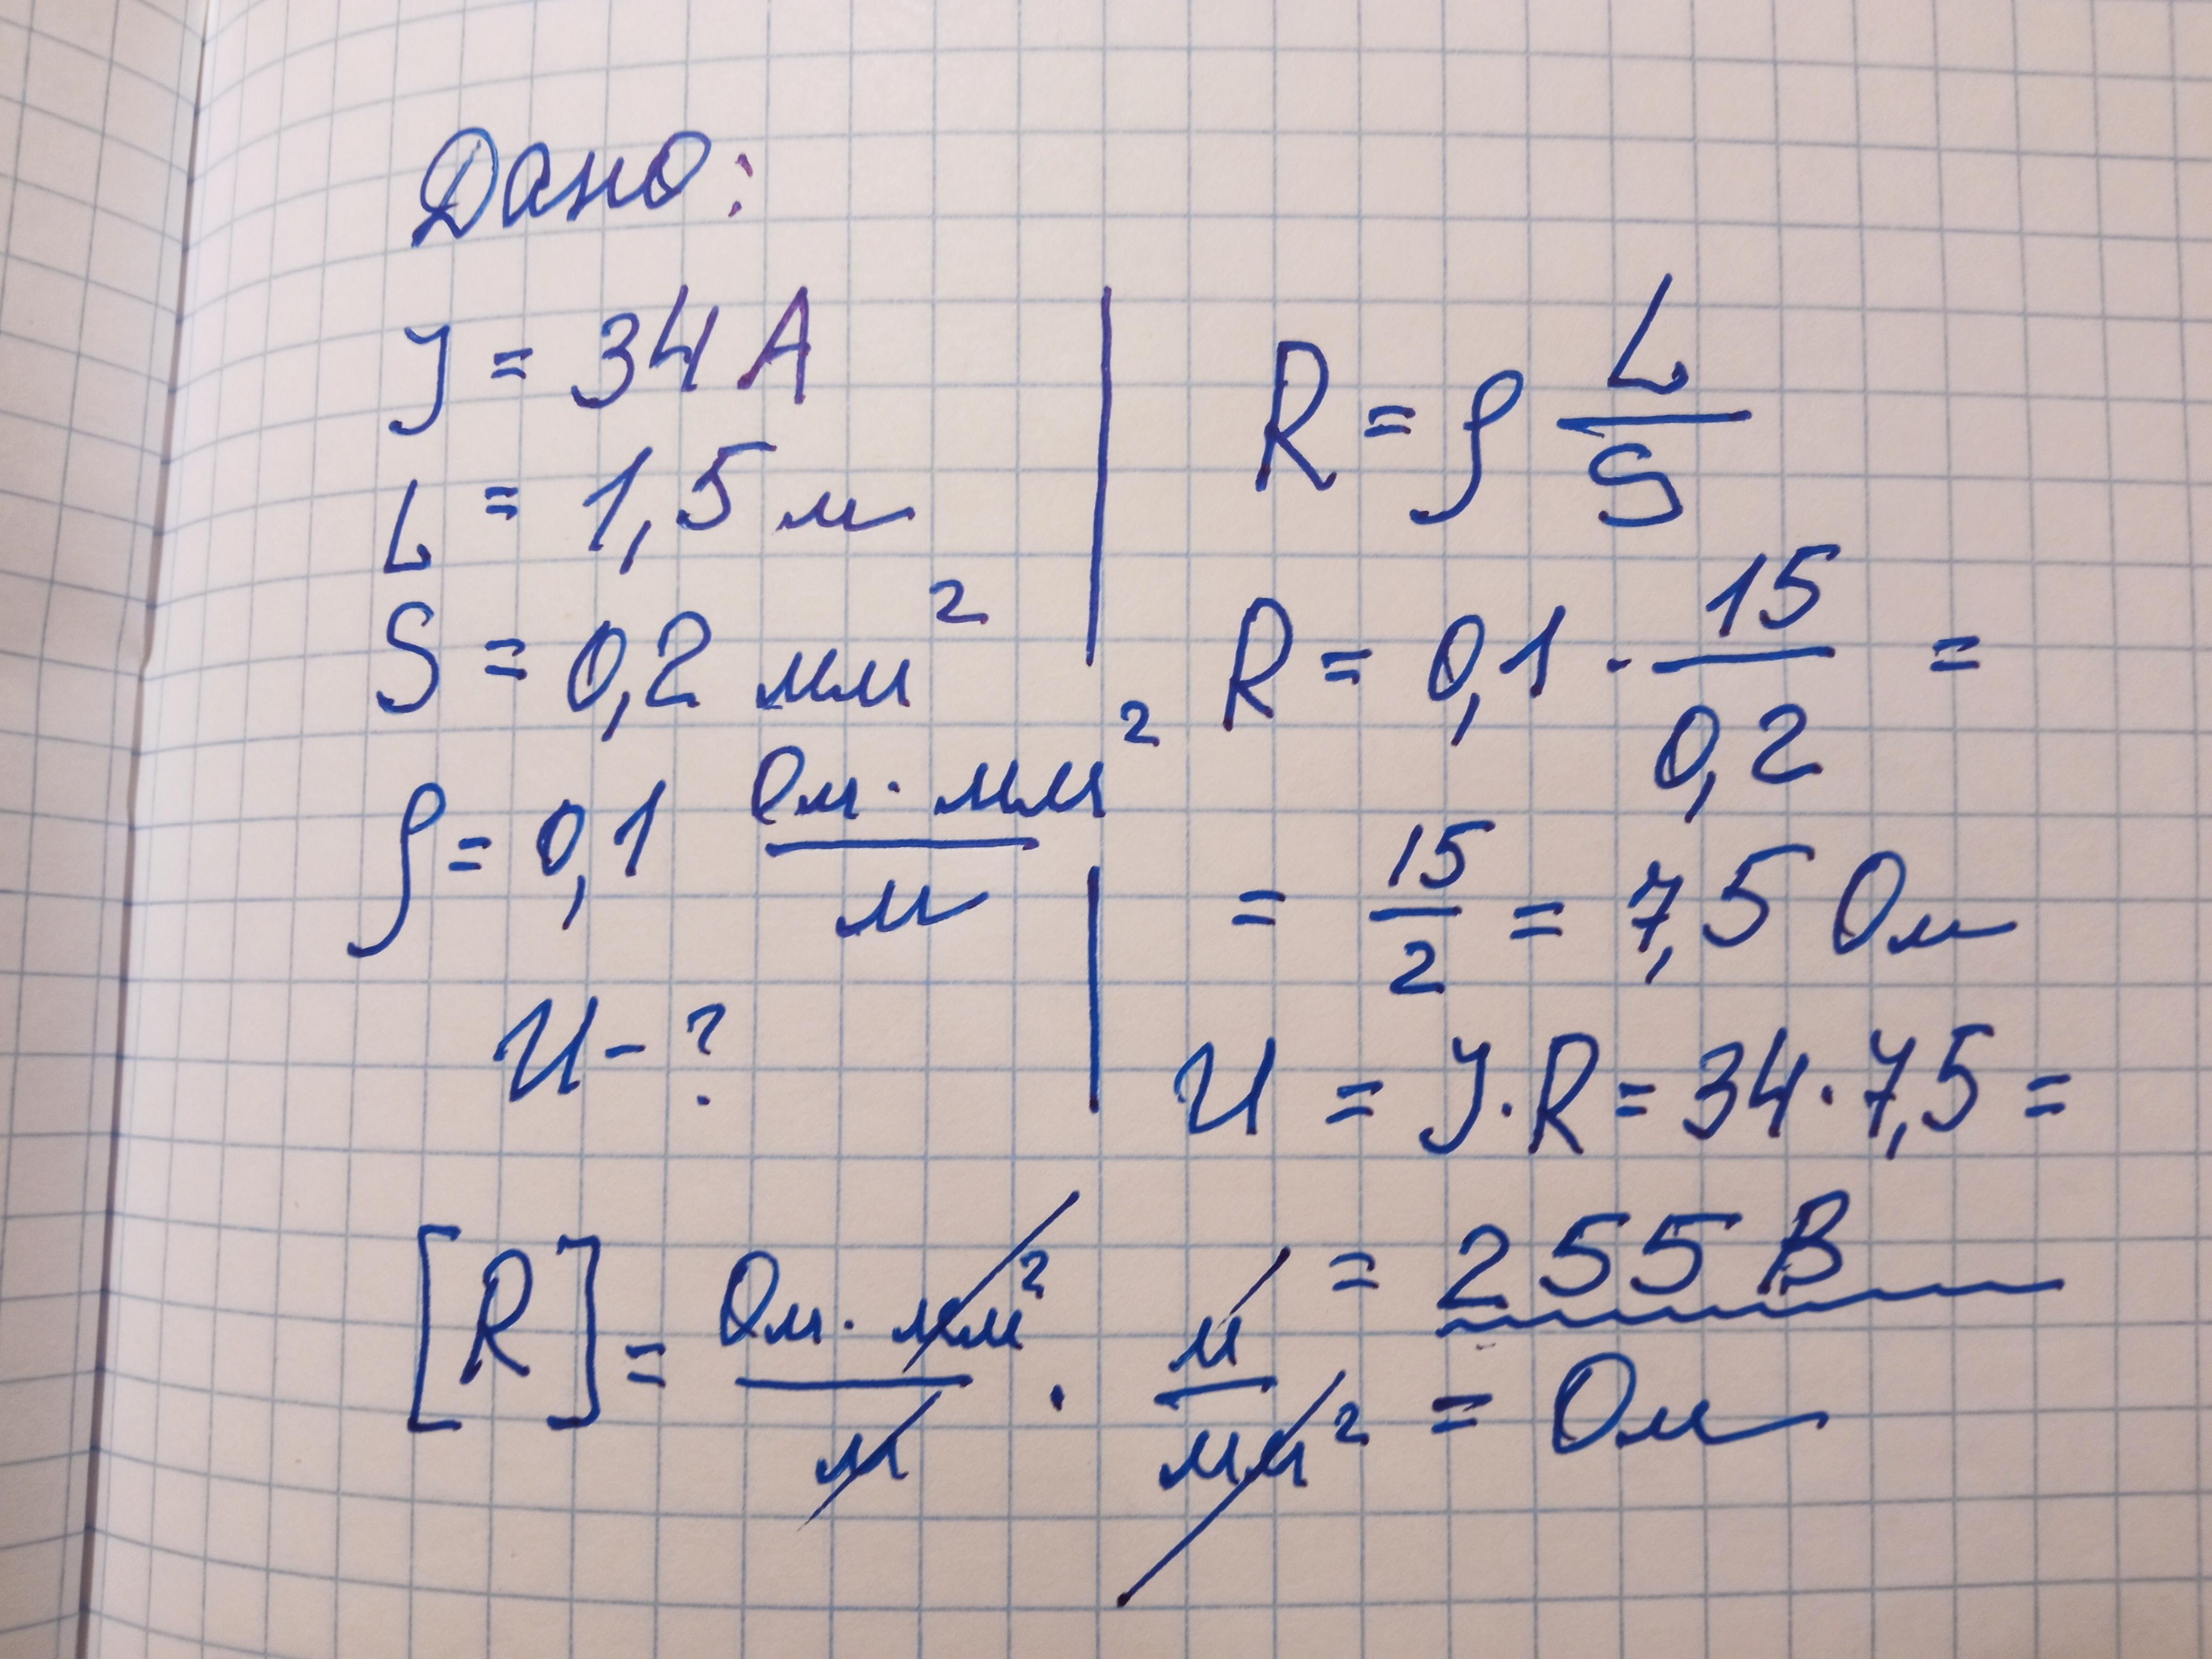 Дано:
J = 34 А
L = 1,5 м
S = 0,2 мм²
ρ = 0,1 Ом · мм² / м
U - ?
R = ρ L / S
R = 0,1 · 15 / 0,2 =
= 15 / 2 = 7,5 Ом
U = J · R = 34 · 7,5 =
= 255 В
[R] = Ом · мм² / м · м / мм² = Ом